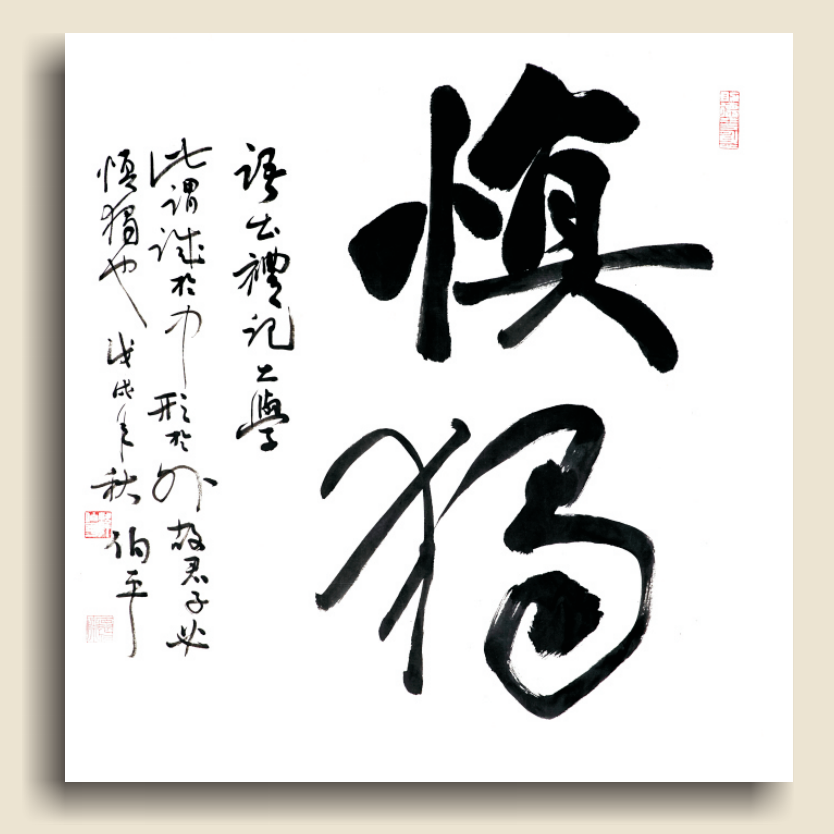 慎獨
語出禮記大學
此謂誠於中形於外故君子必
慎獨也 戊戌年秋 伯平